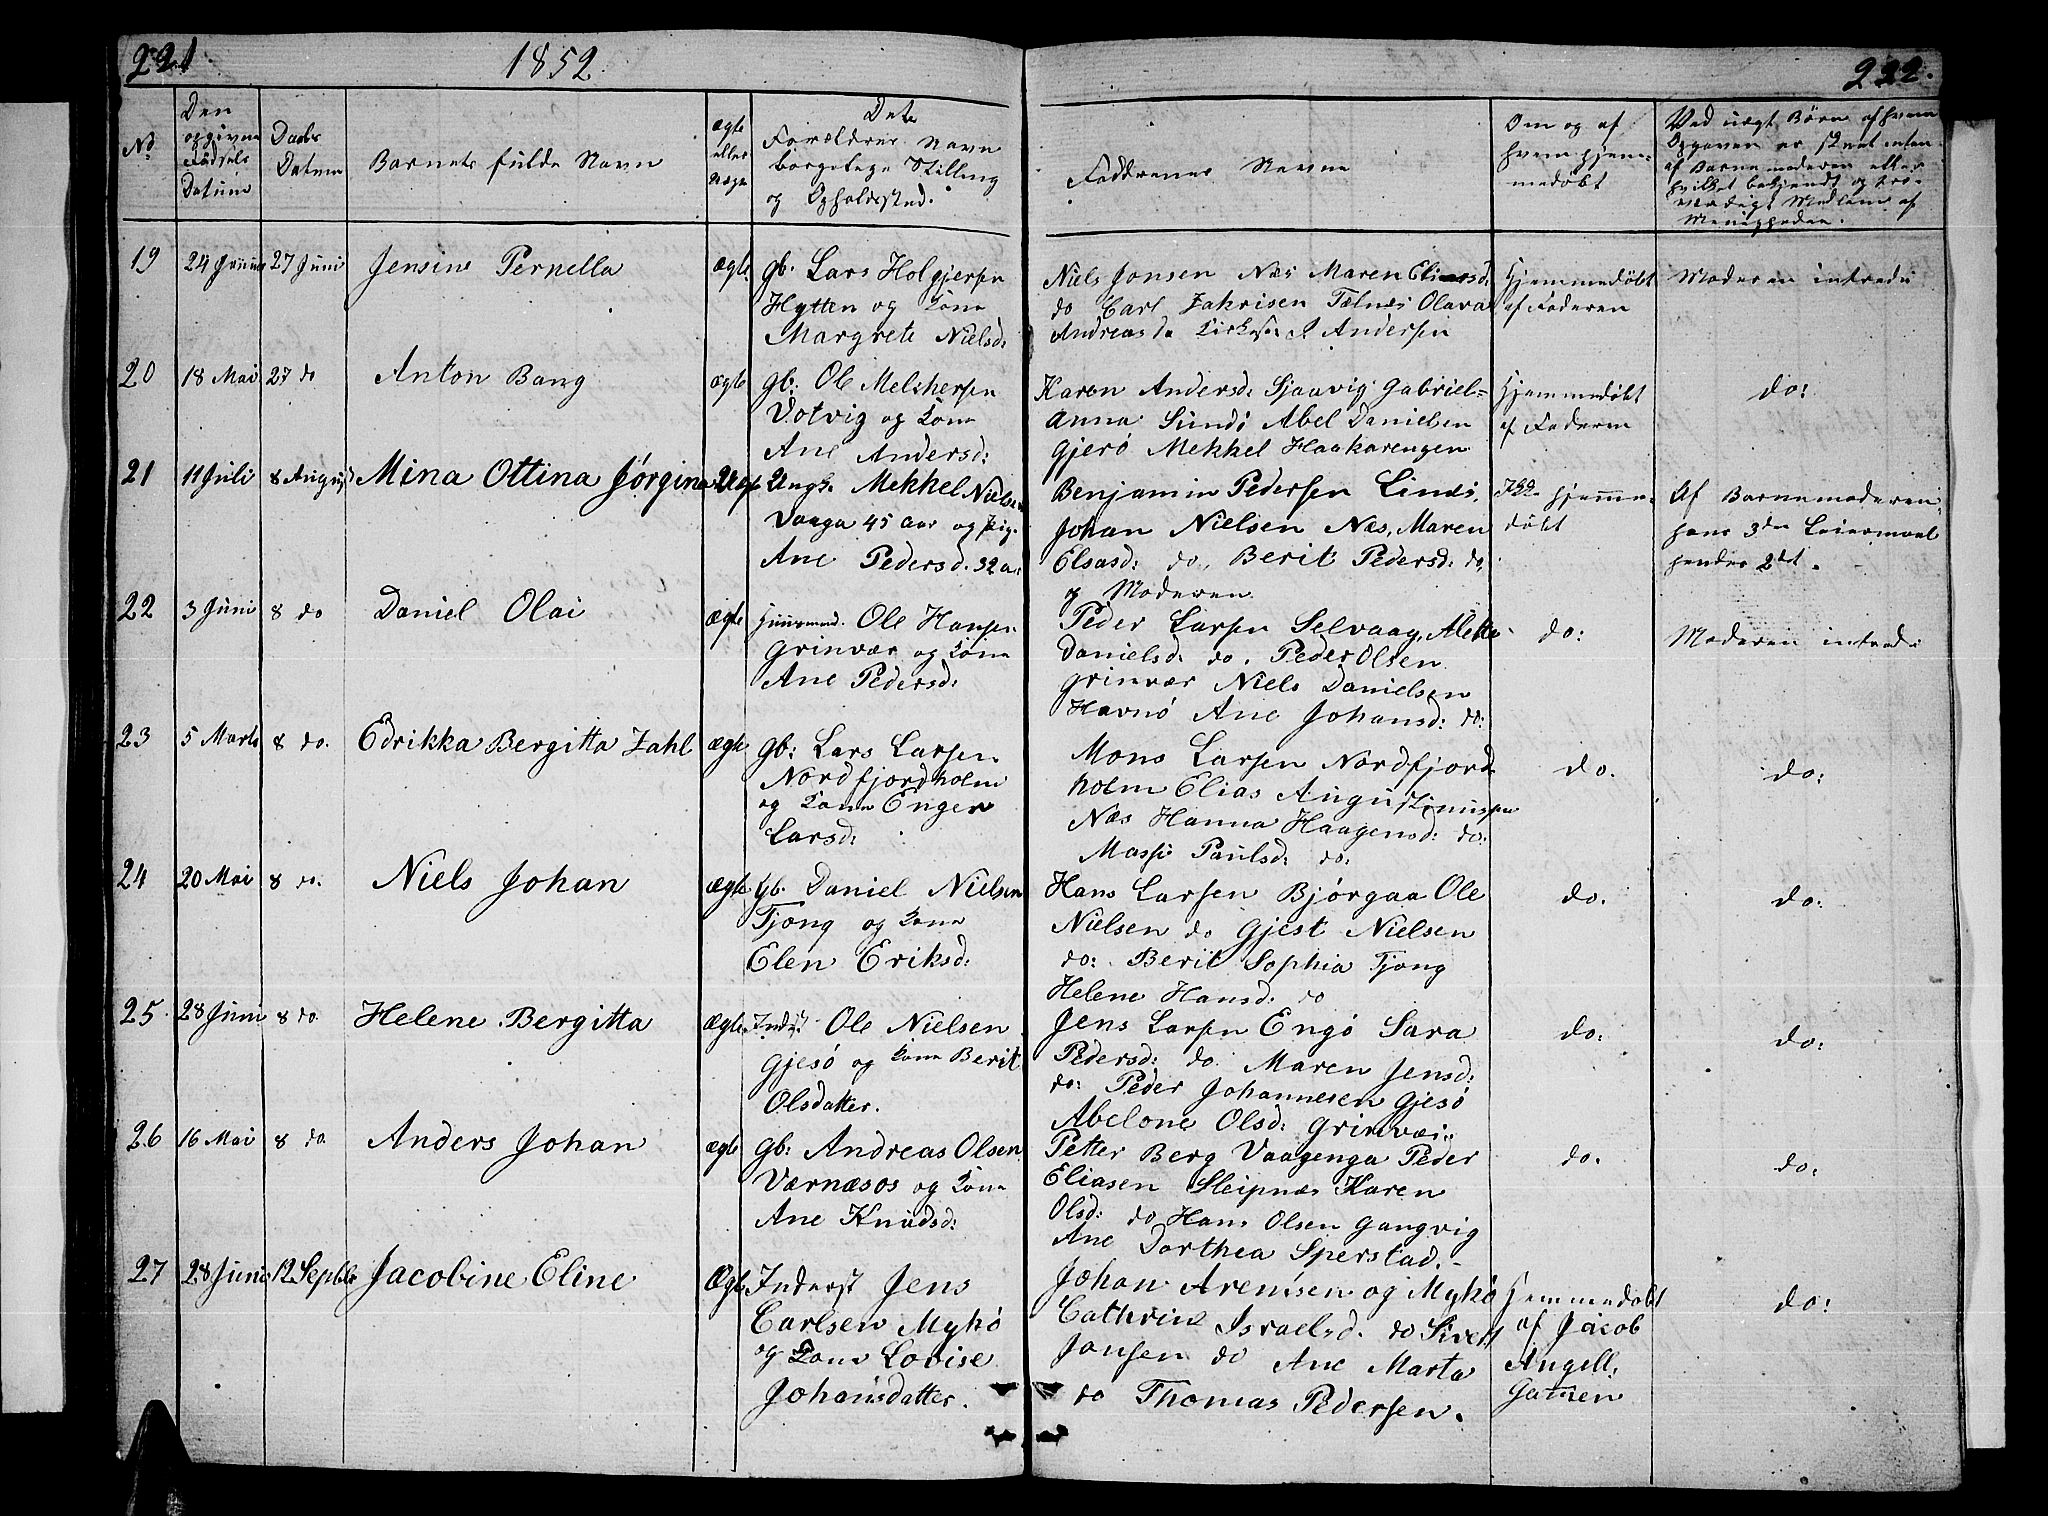 221
1852
222.
No
Den
opgivne
Fødsels
Datum
Daabs
Datum
Barnets fulde Navn
ægte
eller
uægte
Forældres Navn
borgelege Stilling
og Opholdssted.
Faddernes Navne
Om og af
hvem hjem-
medøbt
Ved uægt Børn af hvem
Opgaven er skeet enten
af Barnemoderen eller
hvilket bekjendt og tro-
værdigt Medlem af
Menigheden.
19 24 Juni 27 Juni Jensine Pernella ægte gb. Lars Holgjersen
Hytten og Kone
Margrete Nielsd:
Niels Jonsen Næs Maren
do Carl Zakrisen Olava
Andreasd Andersen
Hjemmedøbt
af Faderen
Moderen introd:
20 18 Mai 27 do Anton Bang ægte gb: Ole Melchersen
Votvig og Kone
Ane Andersd:
Karen Andersd: Sjaavig Gabriel-
Anna Sundø Abel Danielsen
Gjerø Mekkel Haakarengen
Hjemmedøbt
af Faderen
do:
21 11 Juli 8 August Mina Ottina Jørgina Uægt Ungk. Mekkel Nielsen
Vaaga 45 aar og pig.
Ane Pedersd. 32 a:
Benjamin Pedersen Linds,
Johan Nielsen Næs, Maren
Elsasd: do, Berit Pedersd: do,
og Moderen
Ikke hjemme-
døbt
Af Barnemoderen,
hans 3die Leiermaal
hendes 2det.
22 3 Juni 8 do Daniel Olai ægte Huusmand. Ole Hansen
Grinvær og Kone
Ane Pedersd:
Peder Larsen Selvaag, Alette
Danielsd: do, Peder Olsen
Grinvær Niels Danielsen
Havnø Ane Johansd: do:
do:
Moderen introd:
23 5 Marts 8 do. Edrikka Bergitta Zahl ægte gb: Lars Larsen
Nordfjordholm
og Kone Enger
Larsd:
Mons Larsen Nordfjord
holm Elias Augustinussen
Næs Hanna Haagensd: do:
Massi Paulsd: do:
do.
do:
24 20 Mai 8 do. Niels Johan ægte Gb. Daniel Nielsen
Tjong og Kone
Elen Eriksd:
Hans Larsen Bjørgaa Ole
Nielsen do Gjest Nielsen
do: Berit Sophia Tjong
Helene Hansd: do
do.
do:
25. 28 Juni 8 do Helene Bergitta ægte Inderst Ole Nielsen
Gjesø og Kone Berit
Olsdatter.
Jens Larsen Engø Sara
Pedersd: do Maren Jensd:
do: Peder Johannesen Gjesø
Abelone Olsd: Grinvær
do:
do:
26 16 Mai 8 do Anders Johan ægte gb: Andreas Olsen
Værnæsos og Kone
Ane Knudsd:
Petter Berg Vaagenga Peder
Eliasen Sleipnæs Karen
Olsd: do Hans Olsen Gangvig
Ane Dorthea Sperstad.
do.
do:
27 28 Juni 12 Septbr Jacobine Eline Ægte Inderst Jens
Carlsen Mykø
og Kone Lovise
Johansdatter.
Johan Arentsen og Mykø
Cathrine Israelsd. do Sivert
Jansen do Ane Marta
do Thomas Pedersen.
Hjemmedøbt
af Jacob
Angell.
do: